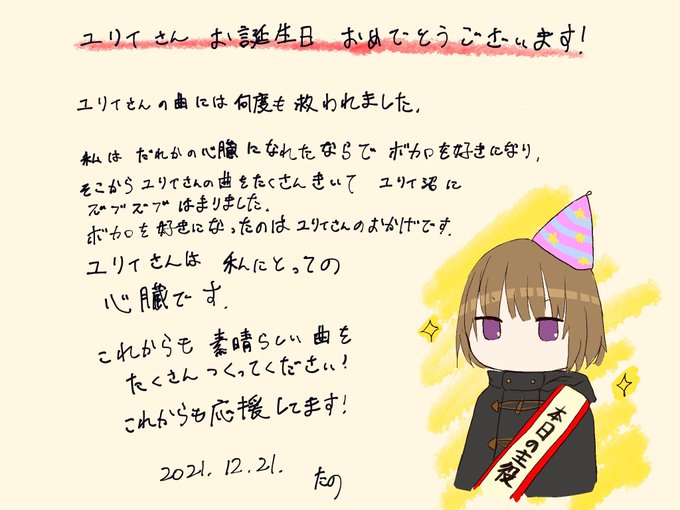 ユリイさん お誕生日 おめでとうございます!
ユリイさんの曲には何度も救われました.
私は だれかの心臓になれたなら で ボカロを好きになり,
そこからユリイさんの曲をたくさんきいて ユリイ沼に
ズブズブはまりました.
ボカロを好きになったのはユリイさんのおかげです.
ユリイさんは 私にとっての
心臓です.
これからも 素晴らしい曲を
たくさんつくってください!
これからも応援してます!
2021.12.21. たの
本日の主役